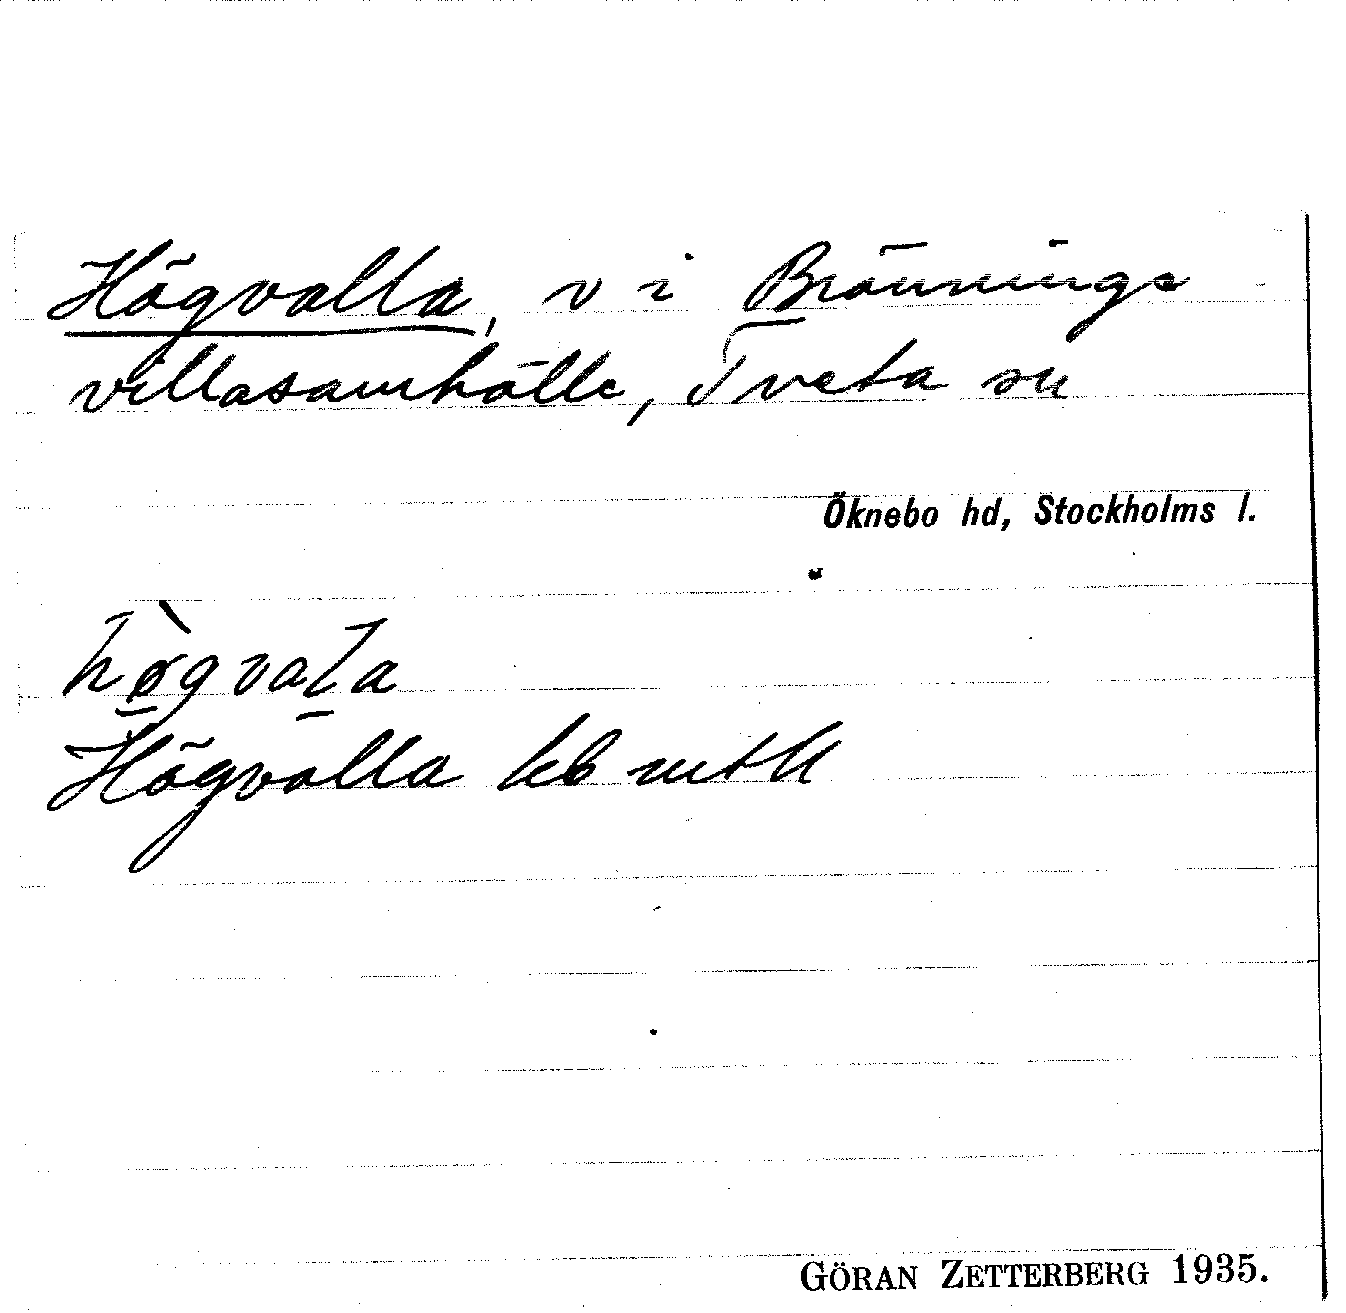 Högvalla, v i Brännings
villasamhälle, Tveta sn
Öknebo hd, Stockholms l.
Högvalla
GÖRAN ZETTERBERG 1935.